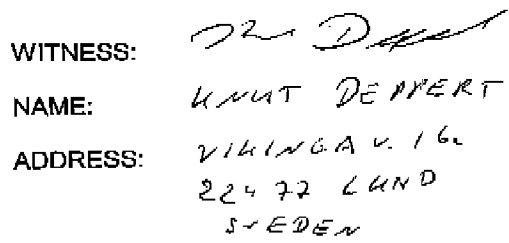 WITNESS:
NAME: KNUT DEPPERT
ADDRESS: VIKINGA V.
224 77 LUND
SWEDEN